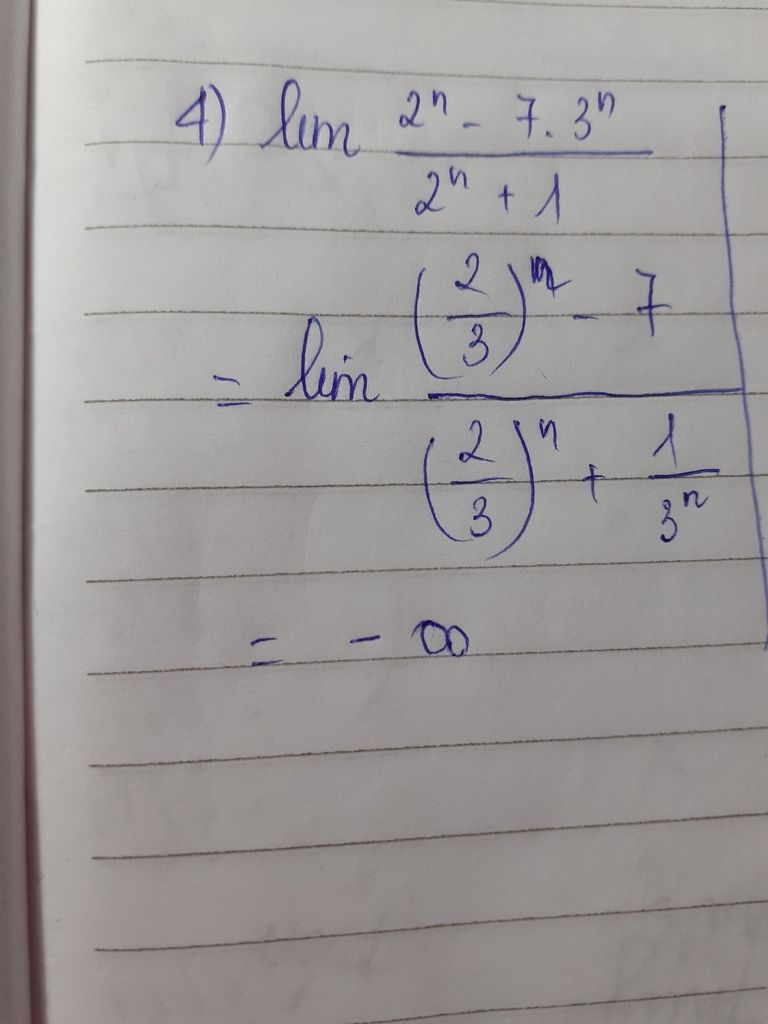 4) lim \frac{2^n - 7.3^n}{2^n + 1}
= lim \frac{\left(\frac{2}{3}\right)^n - 7}{\left(\frac{2}{3}\right)^n + \frac{1}{3^n}}
= - ∞